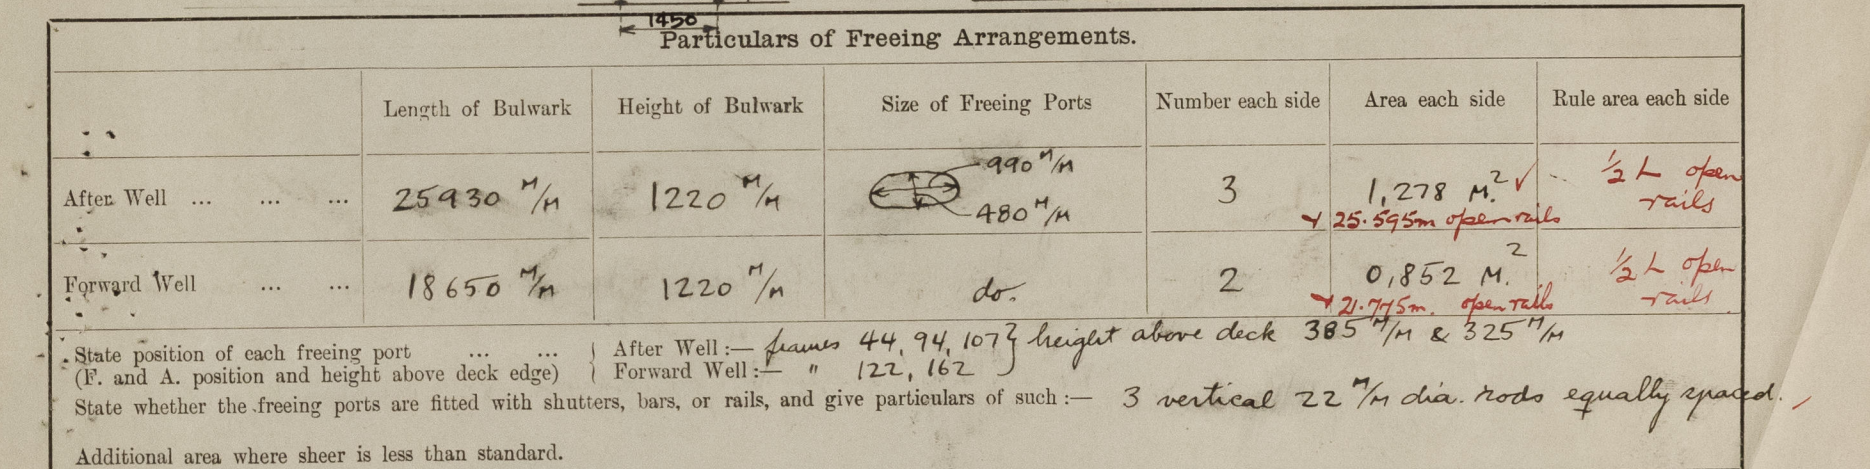 1450
Particulars of Freeing Arrangements.
Length of Bulwark Height of Bulwark Size of Freeing Ports Number each side Area each side Rule area each side
After Well ... ... ... 25930 M/M 1220 M/M 990 M/M 480 M/M 3 1,278 M.² ✓ ½ L open rails
+ 25.595m open rails
Forward Well ... ... 18650 M/M 1220 M/M do. 2 0,852 M.² ½ L open rails
+ 21.775m. open rails
State position of each freeing port ... ... After Well :— frames 44, 94, 107 } height above deck 385 M/M & 325 M/M
(F. and A. position and height above deck edge) Forward Well :— " 122, 162
State whether the freeing ports are fitted with shutters, bars, or rails, and give particulars of such :— 3 vertical 22 M/M dia. rods equally spaced.
Additional area where sheer is less than standard.